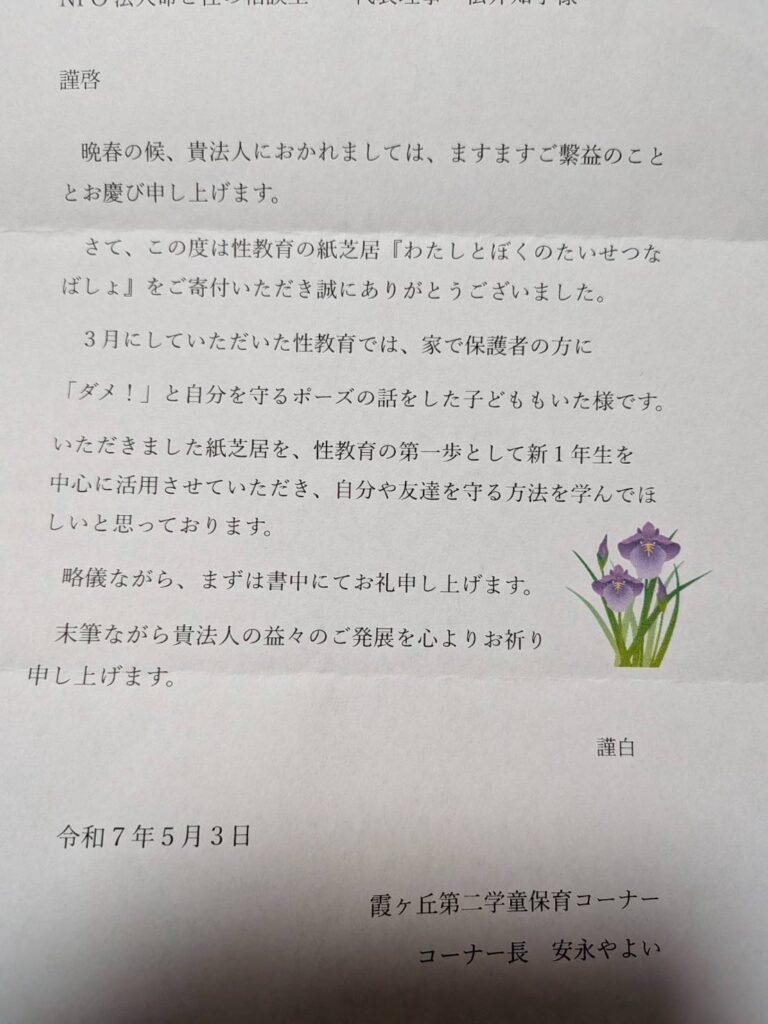 NPO法人 代表理事
謹啓
晩春の候、貴法人におかれましては、ますますご繋益のこと
とお慶び申し上げます。
さて、この度は性教育の紙芝居『わたしとぼくのたいせつな
ばしょ』をご寄付いただき誠にありがとうございました。
３月にしていただいた性教育では、家で保護者の方に
「ダメ！」と自分を守るポーズの話をした子どももいた様です。
いただきました紙芝居を、性教育の第一歩として新１年生を
中心に活用させていただき、自分や友達を守る方法を学んでほ
しいと思っております。
略儀ながら、まずは書中にてお礼申し上げます。
末筆ながら貴法人の益々のご発展を心よりお祈り
申し上げます。
謹白
令和７年５月３日
霞ヶ丘第二学童保育コーナー
コーナー長　安永やよい